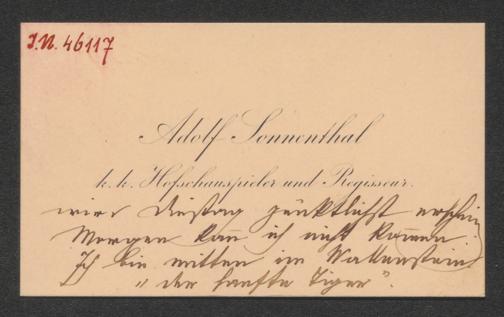 J.N. 46117
Adolf Sonnenthal
k. k. Hofschauspieler und Regisseur.
wird Dienstag pünktlichst erschein
Morgen kann ich nicht kommen
Ich bin mitten im Wallenstein
"der sanfte Tiger".